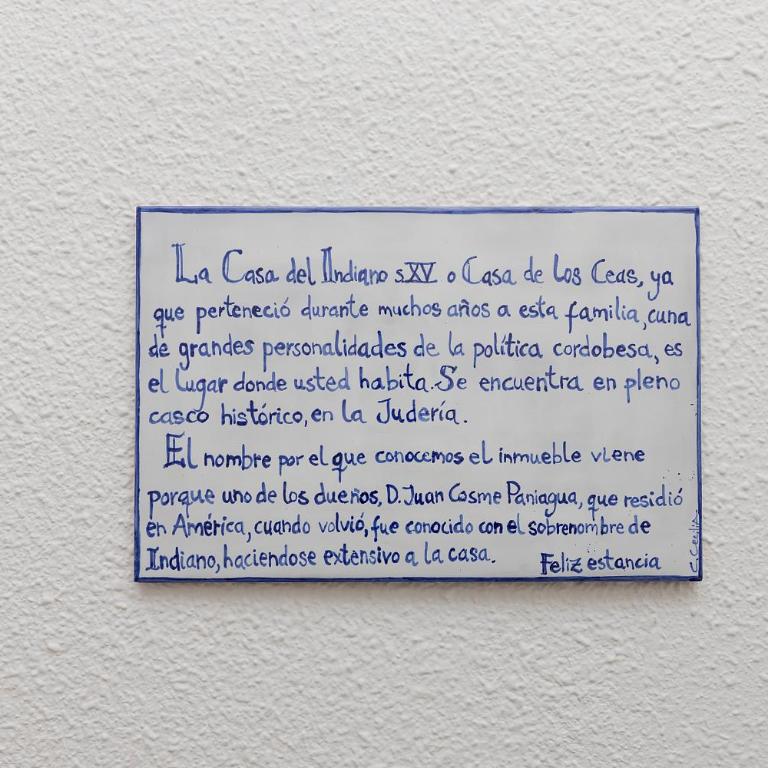 La Casa del Indiano s XV o Casa de los Ceas, ya
que perteneció durante muchos años a esta familia, cuna
de grandes personalidades de la política cordobesa, es
el lugar donde usted habita. Se encuentra en pleno
casco histórico, en la Judería.
El nombre por el que conocemos el inmueble viene
porque uno de los dueños, D. Juan Cosme Paniagua, que residió
en América, cuando volvió, fue conocido con el sobrenombre de
Indiano, haciendose extensivo a la casa.
Feliz estancia
C. Cecilia